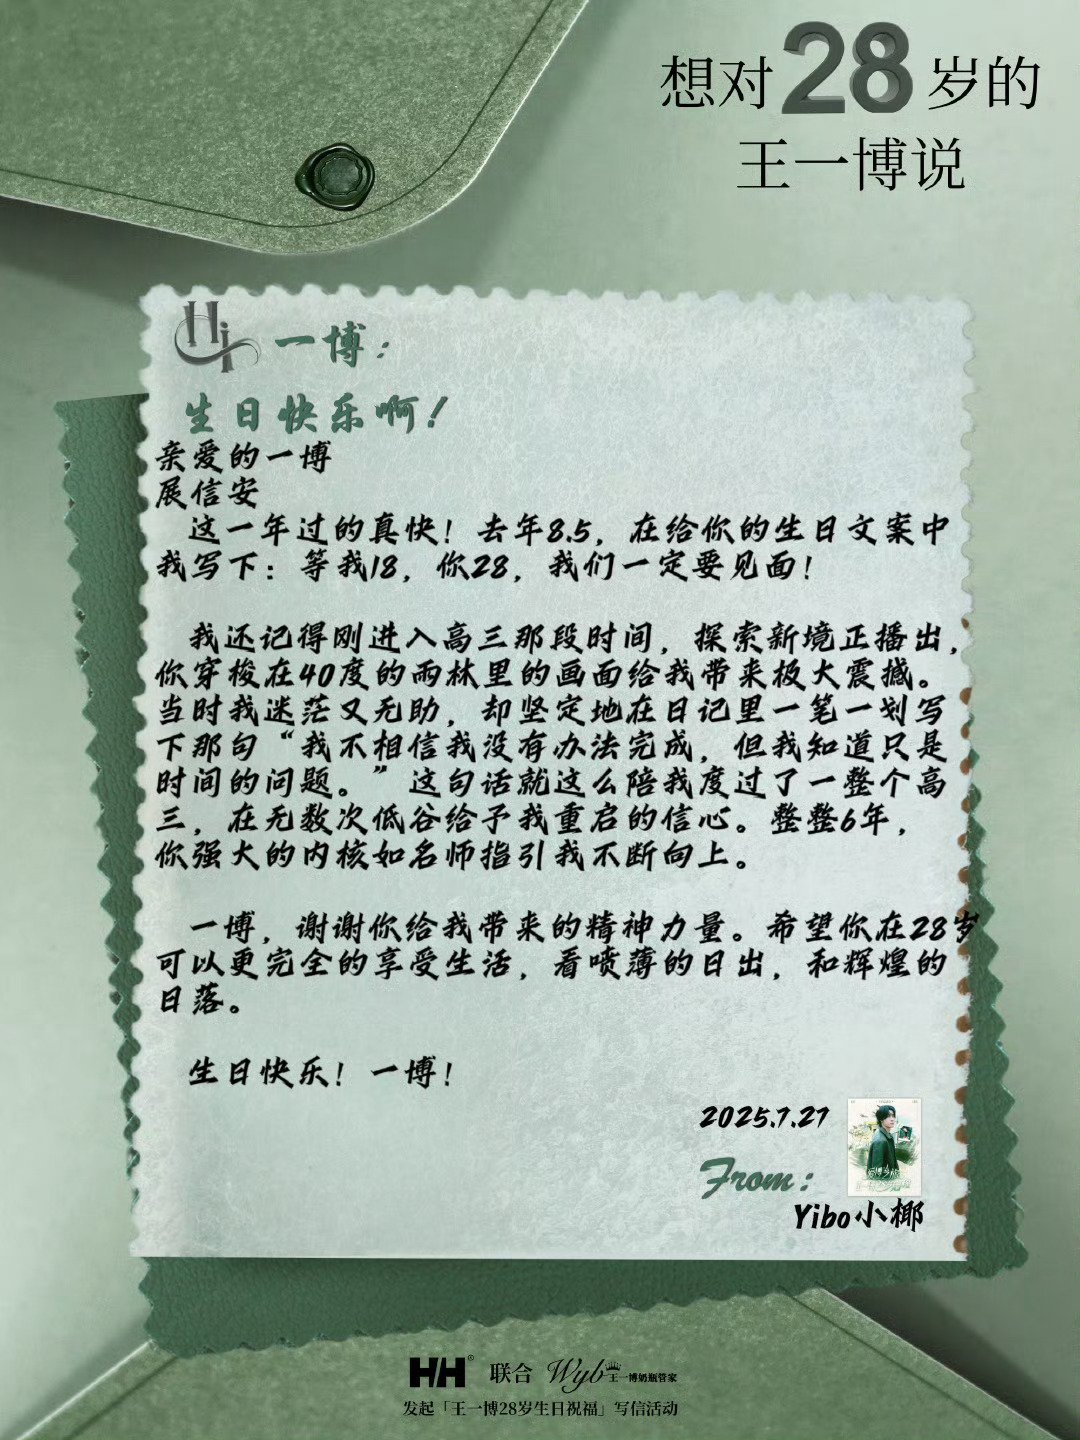 想对28岁的
王一博说
Hi 一博：
生日快乐啊！
亲爱的一博
展信安
这一年过的真快！去年8.5，在给你的生日文案中
我写下：等我18，你28，我们一定要见面！
我还记得刚进入高三那段时间，探索新境正播出，
你穿梭在40度的雨林里的画面给我带来极大震撼。
当时我迷茫又无助，却坚定地在日记里一笔一划写
下那句“我不相信我没有办法完成，但我知道只是
时间的问题。”这句话就这么陪我度过了一整个高
三，在无数次低谷给予我重启的信心。整整6年，
你强大的内核如名师指引我不断向上。
一博，谢谢你给我带来的精神力量。希望你在28岁
可以更完全的享受生活，看喷薄的日出，和辉煌的
日落。
生日快乐！一博！
2025.7.27
From：
Yibo小椰
HH® 联合 Wyb王一博奶瓶管家
发起「王一博28岁生日祝福」写信活动